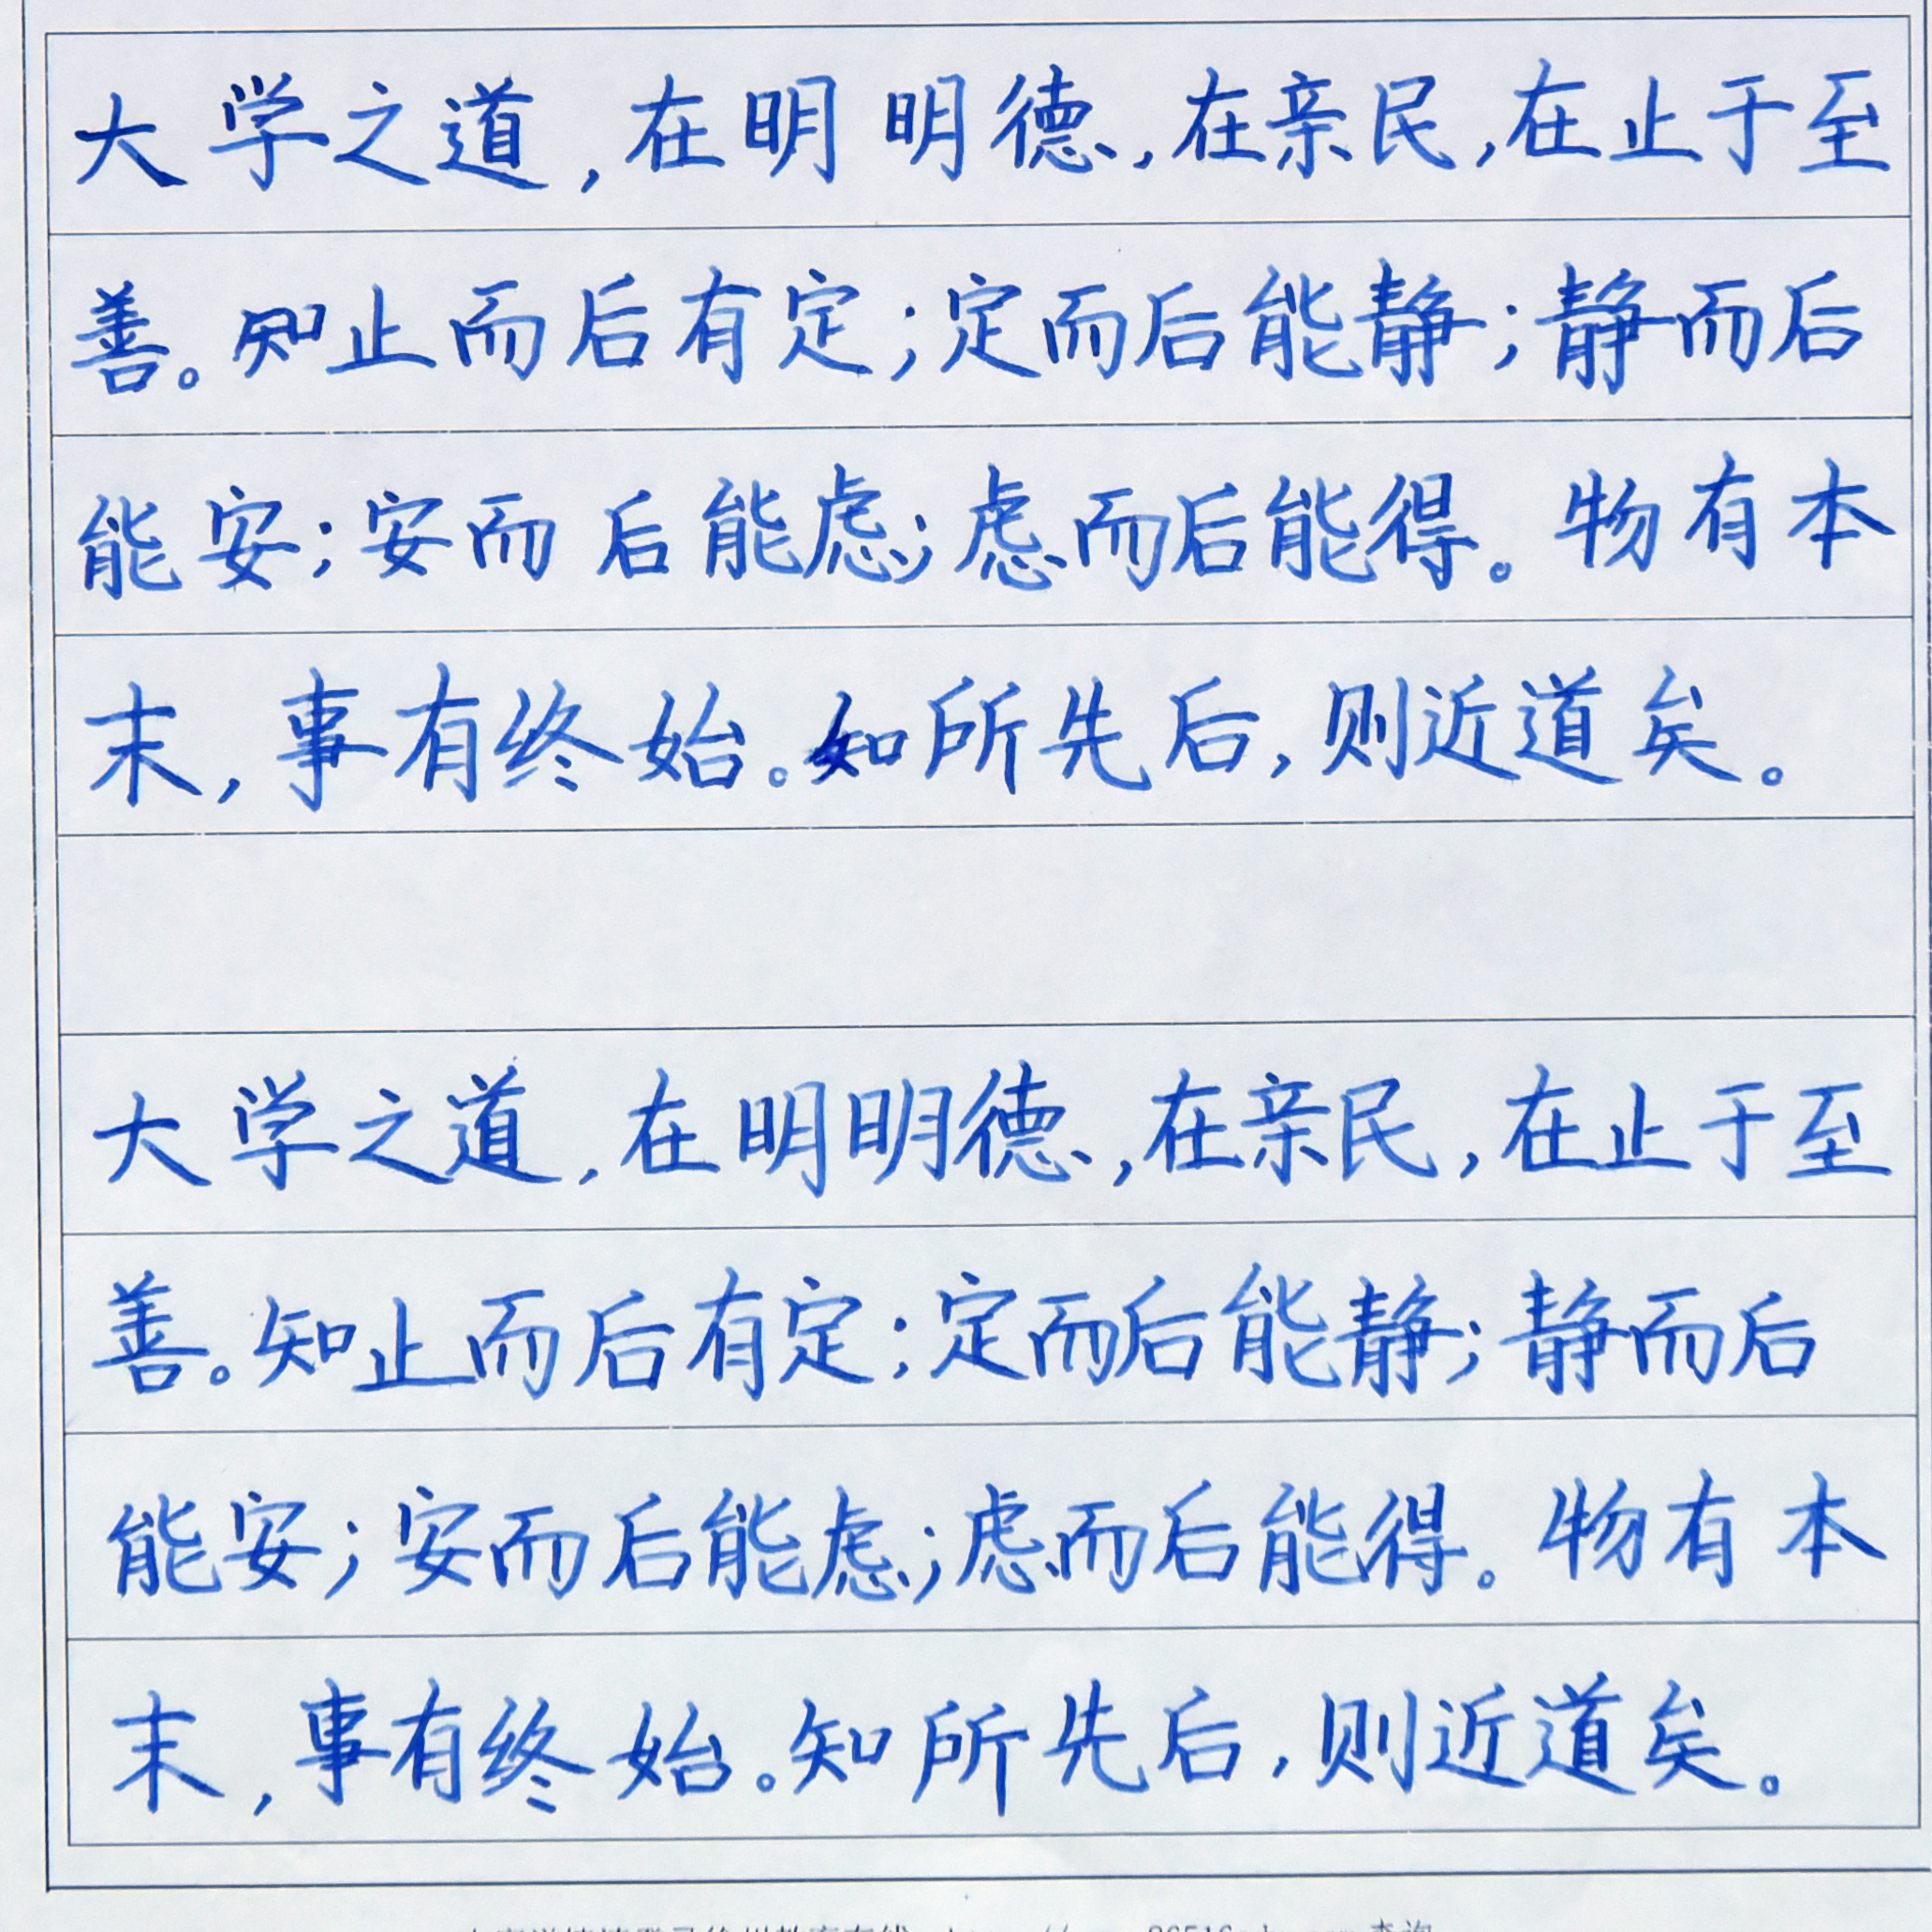 大学之道，在明明德，在亲民，在止于至
善。知止而后有定；定而后能静；静而后
能安；安而后能虑；虑而后能得。物有本
末，事有终始。知所先后，则近道矣。
大学之道，在明明德，在亲民，在止于至
善。知止而后有定；定而后能静；静而后
能安；安而后能虑；虑而后能得。物有本
末，事有终始。知所先后，则近道矣。